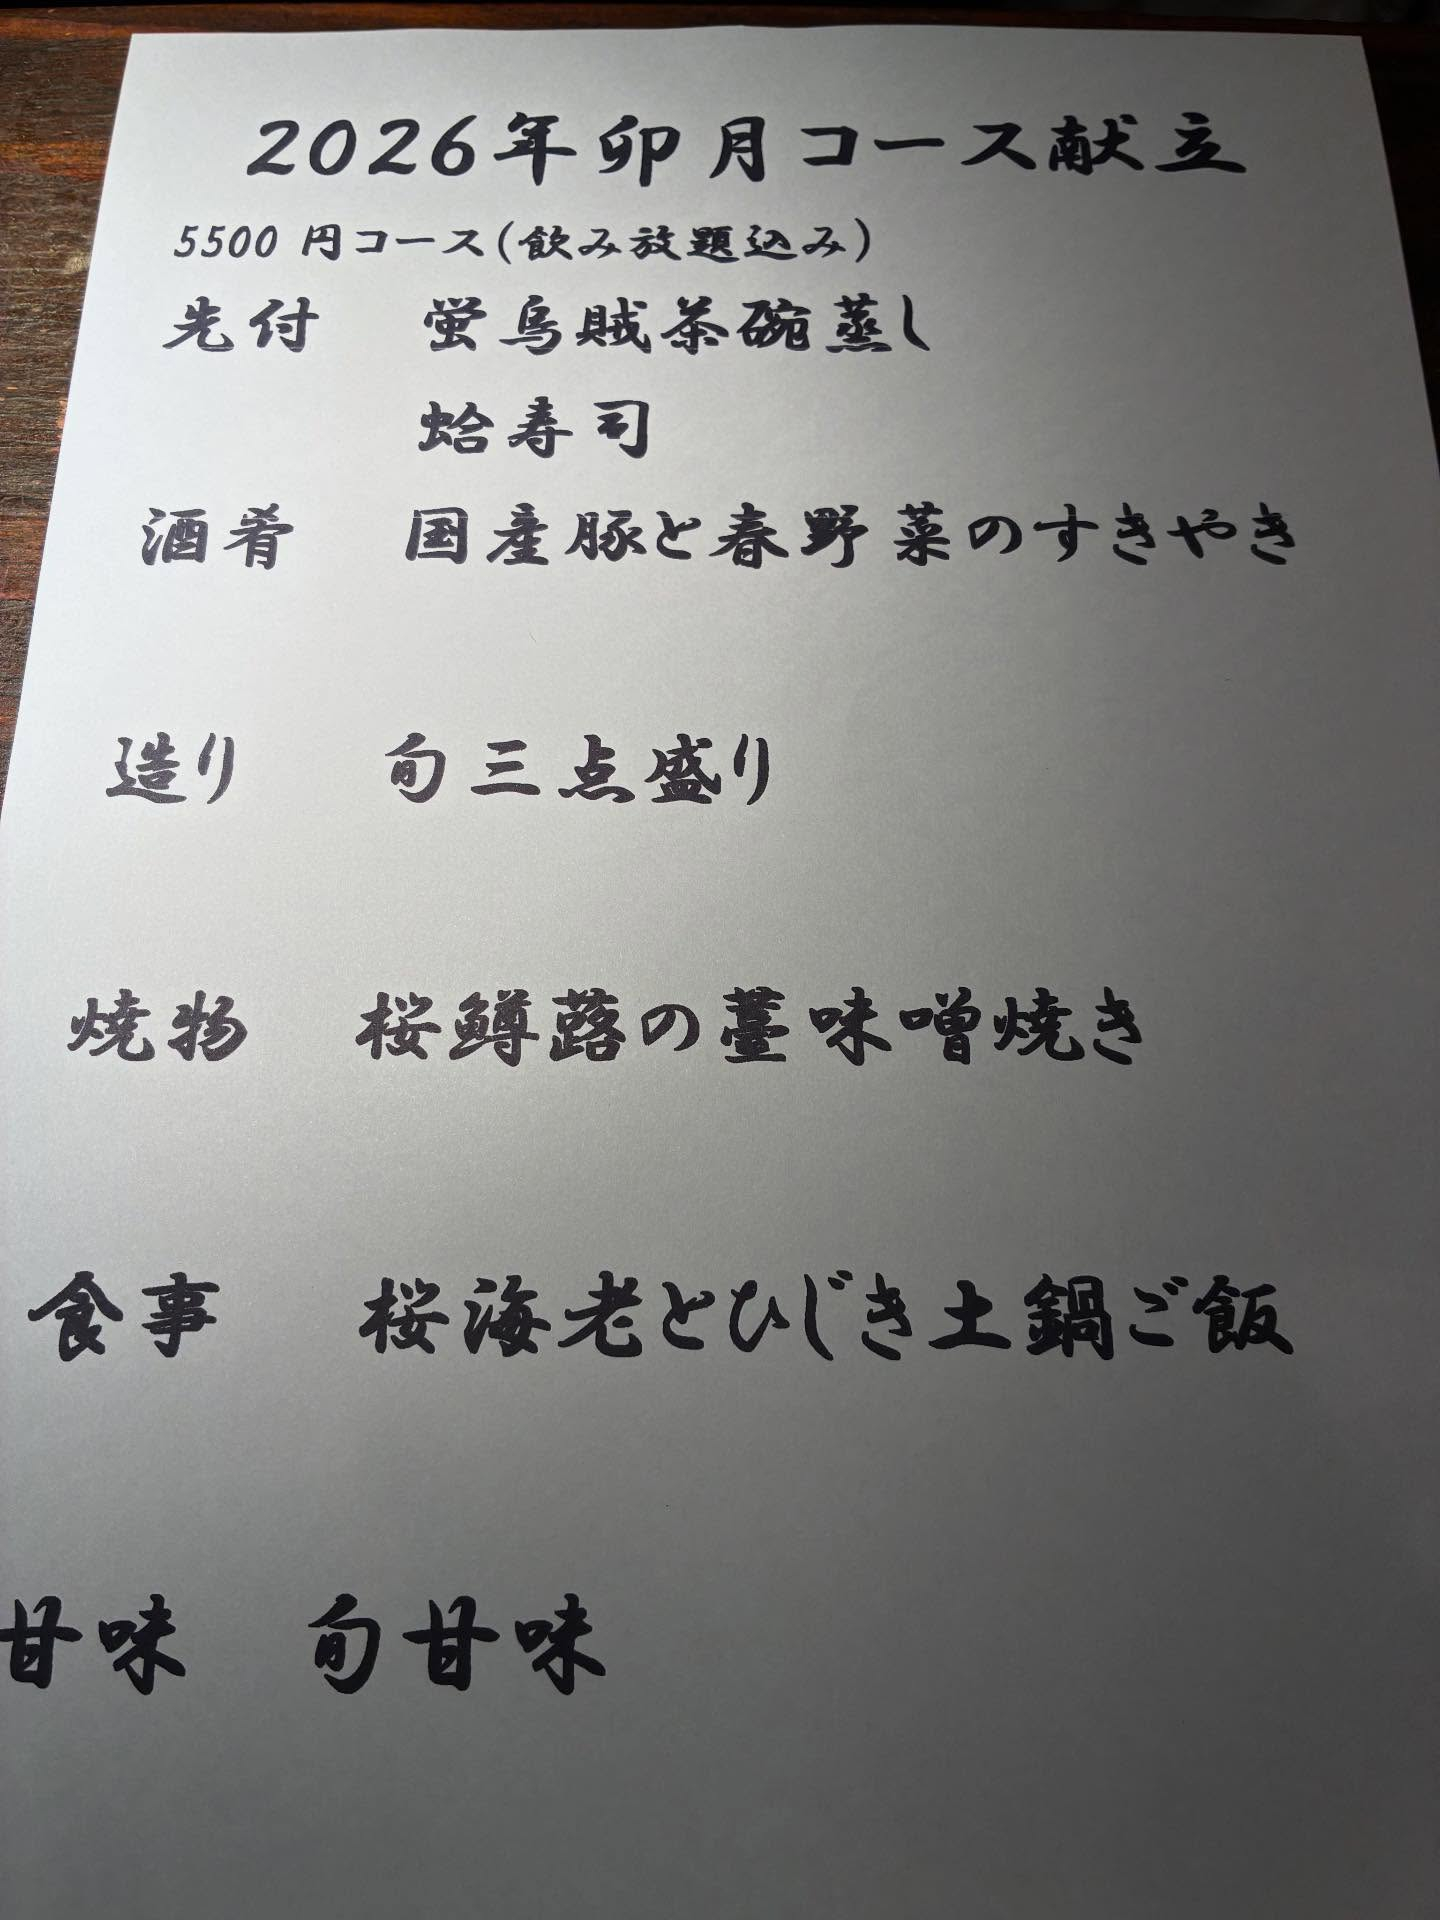 2026年卯月コース献立
5500円コース(飲み放題込み)
先付 蛍烏賊茶碗蒸し
蛤寿司
酒肴 国産豚と春野菜のすきやき
造り 旬三点盛り
焼物 桜鱒蕗の薹味噌焼き
食事 桜海老とひじき土鍋ご飯
甘味 旬甘味